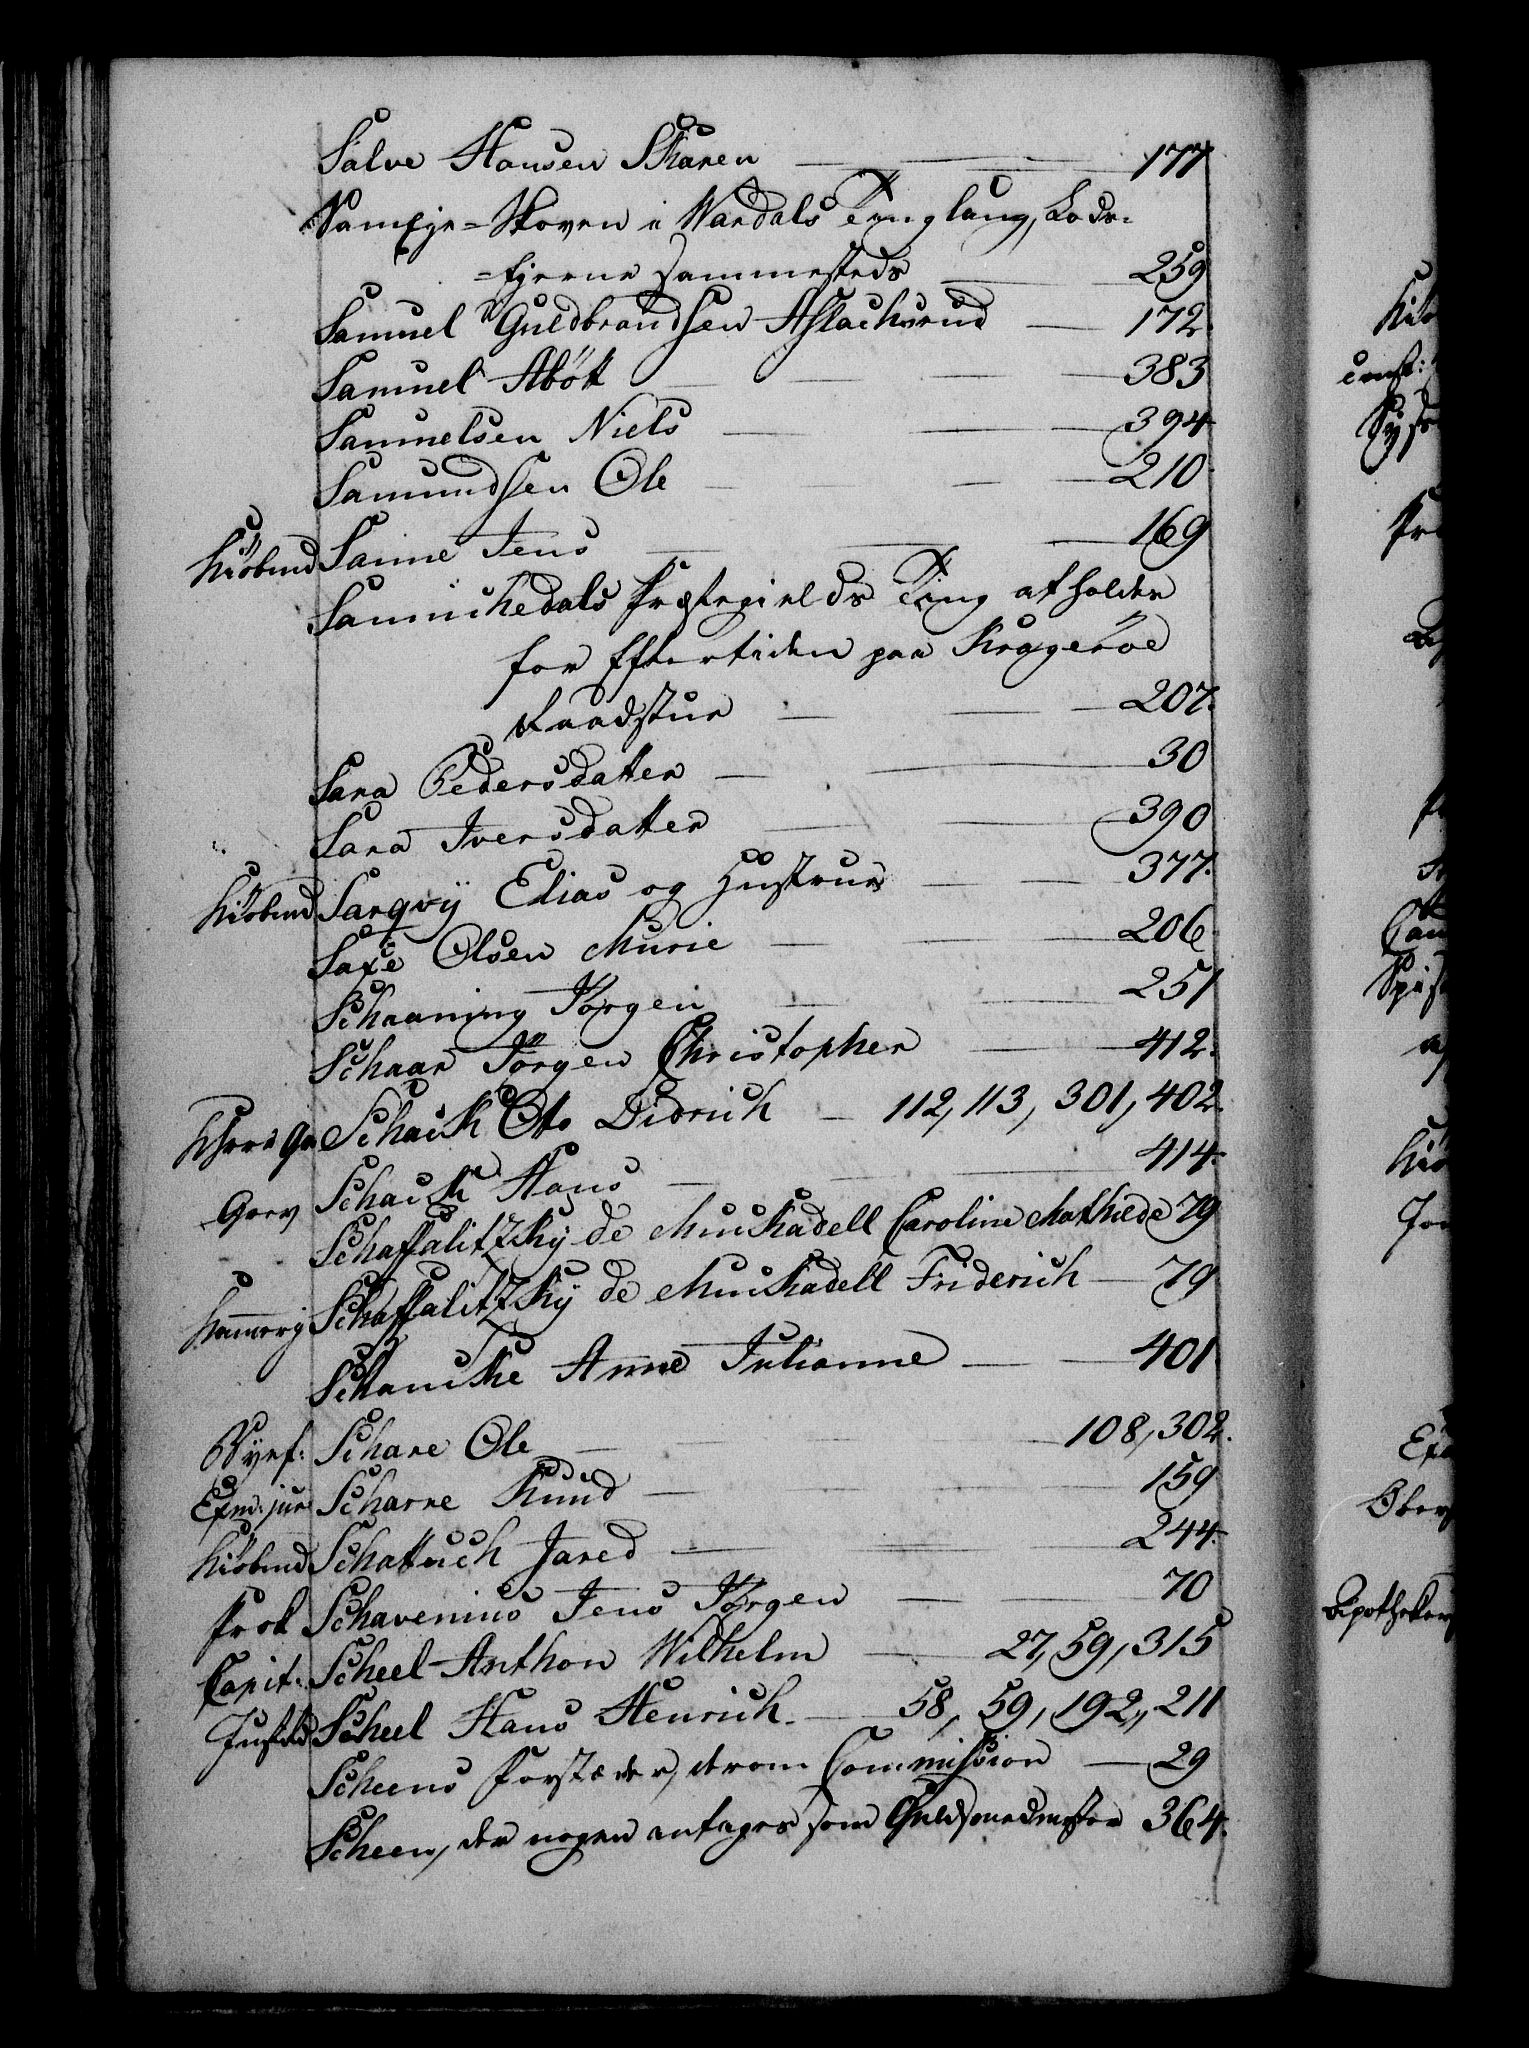 Salve Hansen Skaren — 177
Sameje-Skoven i Wardals Tinglaug, Lods-
-ejerne sammesteds 259
Samuel Guldbrandsen Aslachsrud — 172.
Samuel Abök — 383
Samuelsen Niels — 394
Samundsen Ole — 210
Kiöbmd Sanne Jens — 169
Sannichedals Præstegields Ting afholdes
for Eftertiden paa Kragerøe
Raadstue — 207.
Sara Pedersdatter — 30
Sara Iversdatter — 390
Kiöbmd Sarqvij Elias og Hustrue — 377.
Saxe Olsen Murie — 206
Schaaning Jørgen — 251
Schaar Jörgen Christopher — 412.
Schack Otto Didrich — 112, 113, 301, 402.
Grev Schack Hans — 414.
Schaffalitzkij de Muckadell Caroline Mathilde 79
Schaffalitzkij de Muckadell Friderich — 79
Schancke Anne Julianne — 401
Byef: Schare Ole — 108, 302.
Exm: jur Scharre Knud — 159
Kiöbmd Schattuck Jared — 244.
Prok Schavenius Jens Jörgen — 70
Capit: Scheel Anthon Wilhelm — 27, 59, 315
Justrd Scheel Hans Henrich. — 58, 59, 192, 211
Scheens Forstæder, derom Commission — 29
Scheen, der nogen antages som Guldsmedmester 364.
Kiö
const:
Can
Exa
Ober
Apotheker